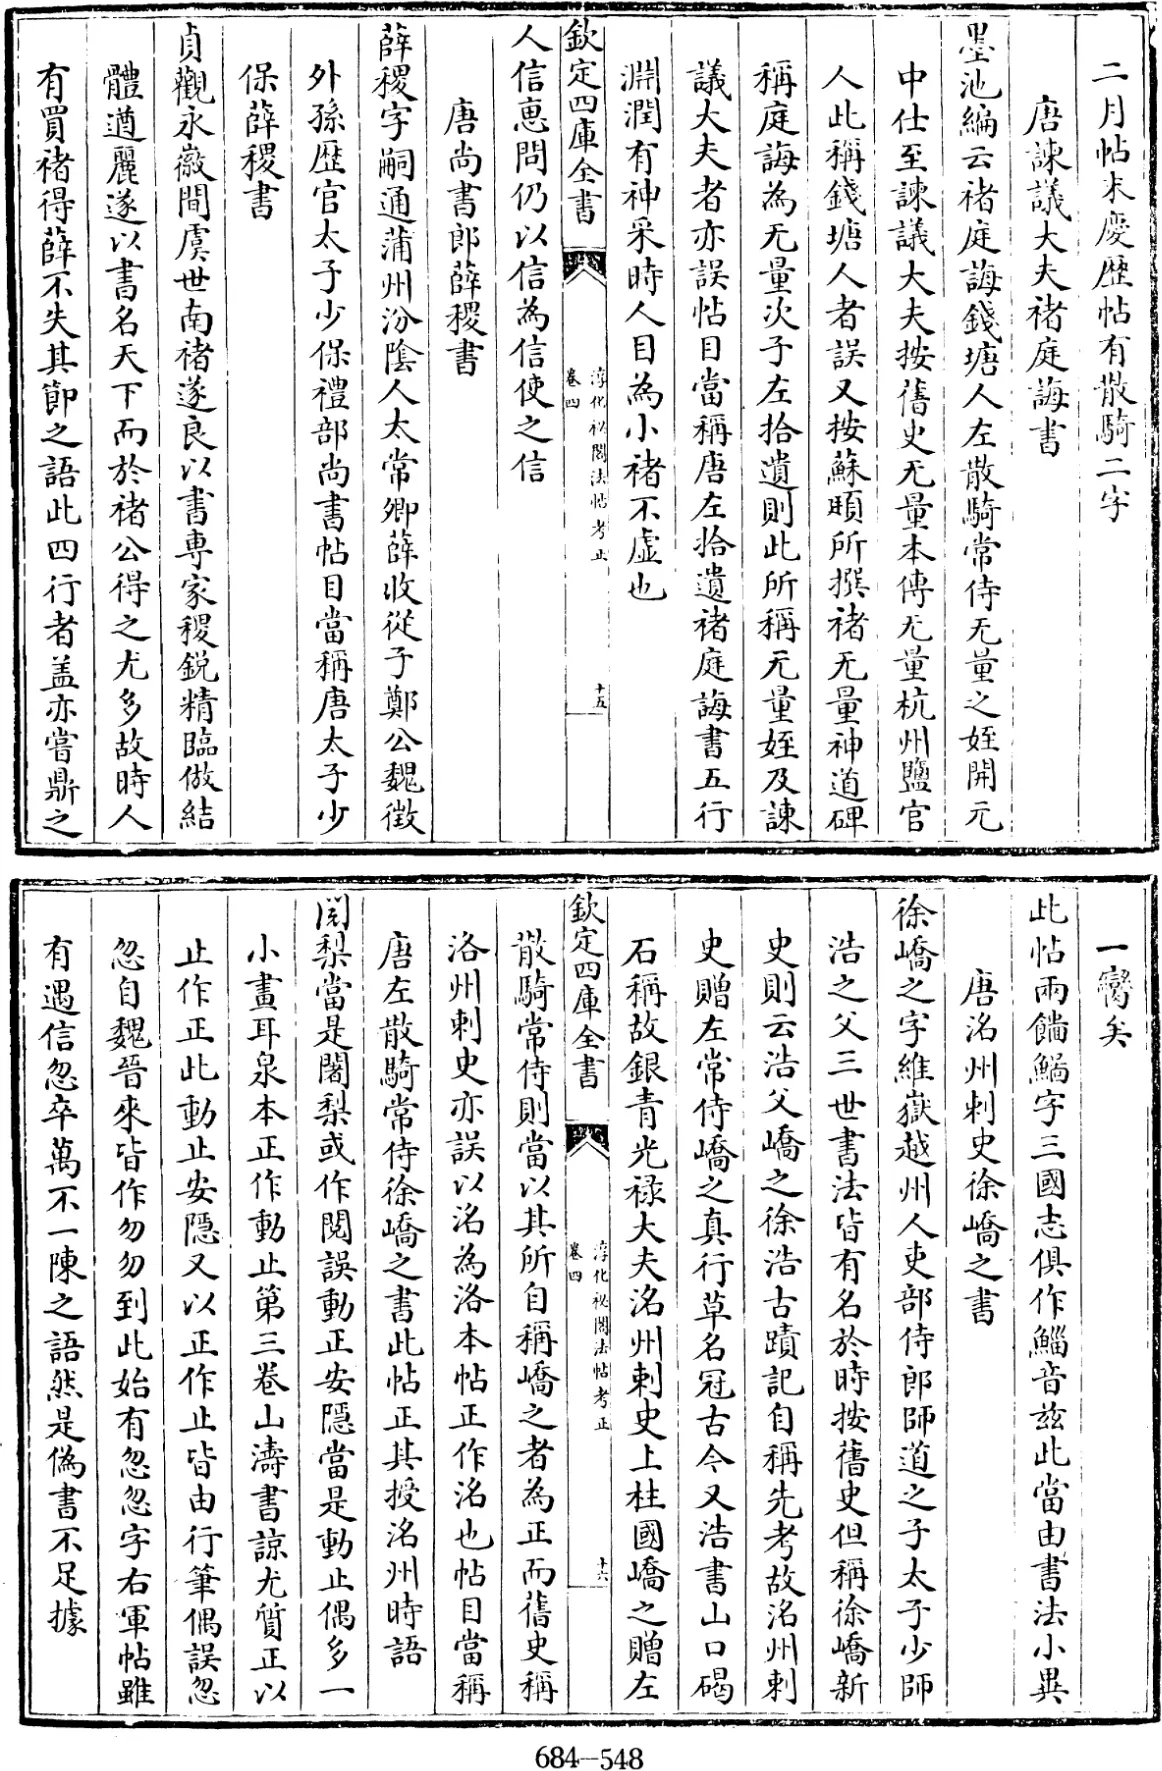 二月帖末慶歷帖有散騎二字
唐諫議大夫褚庭誨書
墨池編云褚庭誨錢塘人左散騎常侍无量之姪開元
中仕至諫議大夫按舊史无量本傳无量杭州鹽官
人此稱錢塘人者誤又按蘇頲所撰褚无量神道碑
稱庭誨為无量次子左拾遺則此所稱无量姪及諫
議大夫者亦誤帖目當稱唐左拾遺褚庭誨書五行
淵潤有神采時人目為小褚不虛也
欽定四庫全書
淳化祕閣法帖考正
卷四
十五
人信惠問仍以信為信使之信
唐尚書郎薛稷書
薛稷字嗣通蒲州汾陰人太常卿薛收從子鄭公魏徵
外孫歷官太子少保禮部尚書帖目當稱唐太子少
保薛稷書
貞觀永徽間虞世南褚遂良以書專家稷銳精臨倣結
體遒麗遂以書名天下而於褚公得之尤多故時人
有買褚得薛不失其節之語此四行者蓋亦嘗鼎之
一臠矣
此帖兩餚鯔字三國志俱作鯔音玆此當由書法小異
唐洺州刺史徐嶠之書
徐嶠之字維嶽越州人吏部侍郎師道之子太子少師
浩之父三世書法皆有名於時按舊史但稱徐嶠新
史則云浩父嶠之徐浩古蹟記自稱先考故洺州刺
史贈左常侍嶠之真行草名冠古今又浩書山口碣
石稱故銀青光祿大夫洺州刺史上柱國嶠之贈左
欽定四庫全書
淳化祕閣法帖考正
卷四
十六
散騎常侍則當以其所自稱嶠之者為正而舊史稱
洛州刺史亦誤以洺為洛本帖正作洺也帖目當稱
唐左散騎常侍徐嶠之書此帖正其授洺州時語
闍梨當是闍梨或作閱誤動正安隱當是動止偶多一
小畫耳泉本正作動止第三卷山濤書諒尤質正以
止作正此動止安隱又以正作止皆由行筆偶誤忽
忽自魏晉來皆作勿勿到此始有忽忽字右軍帖雖
有遇信忽卒萬不一陳之語然是偽書不足據
684—548